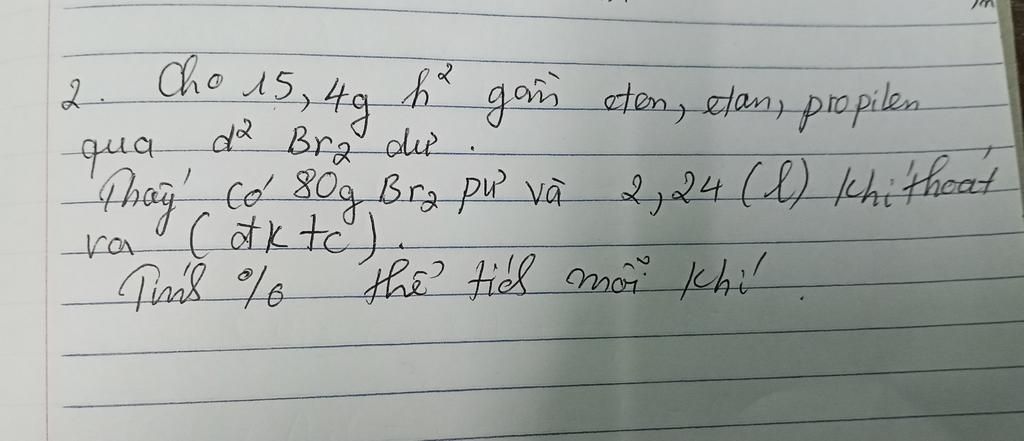 2. Cho 15,4g h² gồm eten, etan, propilen
qua d² Br₂ dư.
Thấy có 80g Br₂ pư và 2,24 (l) khí thoát
ra (đktc).
Tính % thể tích mỗi khí.